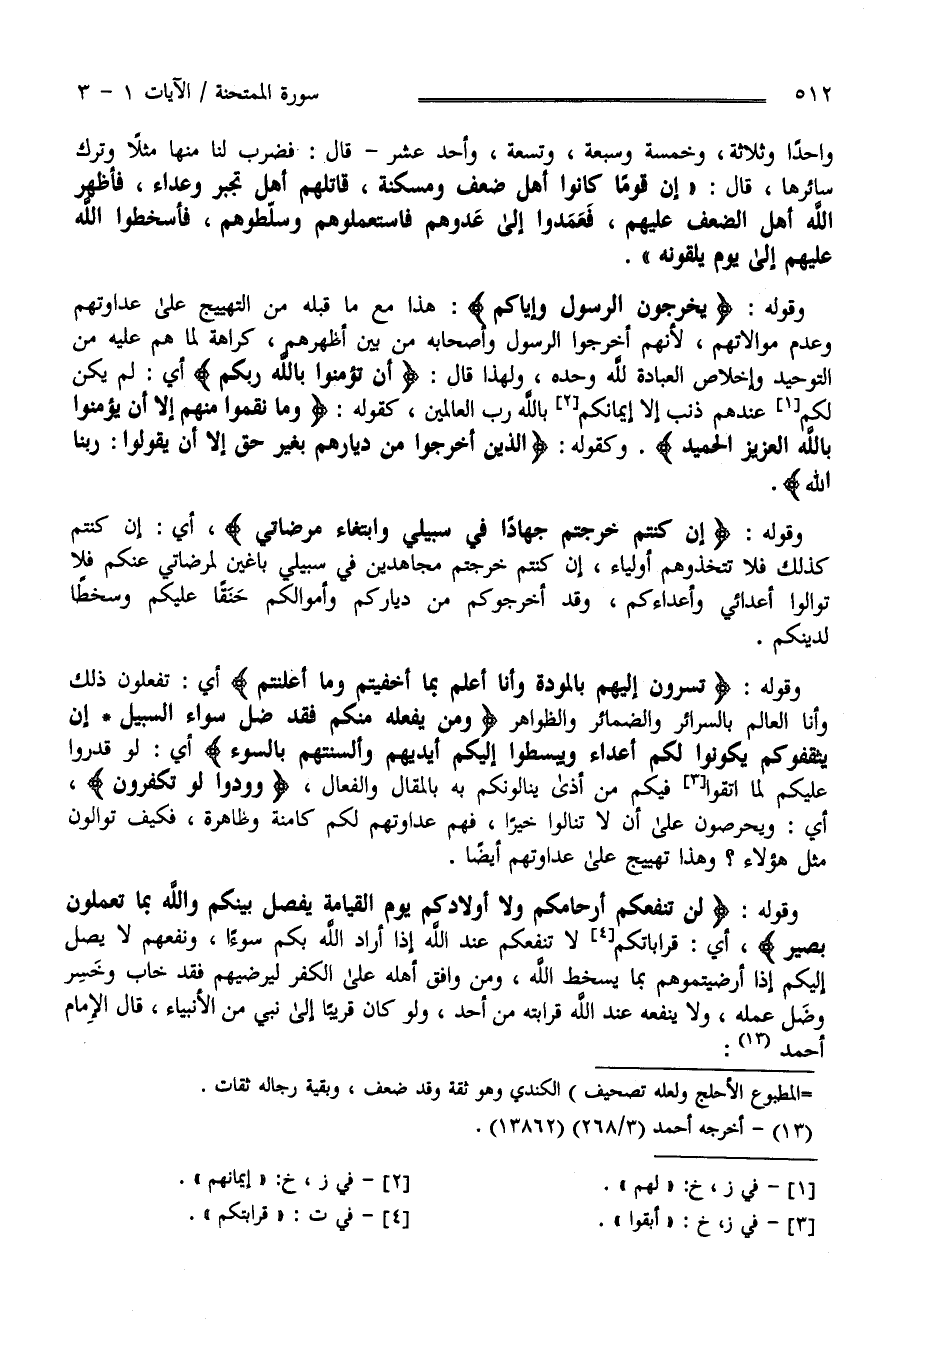 ٥١٢ سورة الممتحنة / الآيات ١ - ٣
واحدًا وثلاثة ، وخمسة وسبعة ، وتسعة ، وأحد عشر - قال : فضرب لنا منها مثلًا وترك
سائرها ، قال : « إن قومًا كانوا أهل ضعف ومسكنة ، قاتلهم أهل تجبر وعداء ، فأظهر
اللَّه أهل الضعف عليهم ، فَعَمَدوا إلىٰ عَدوهم فاستعملوهم وسلّطوهم ، فأسخطوا اللَّه
عليهم إلىٰ يوم يلقونه » .
وقوله : ﴿ يخرجون الرسول وإياكم ﴾ : هذا مع ما قبله من التهييج علىٰ عداوتهم
وعدم موالاتهم ، لأنهم أخرجوا الرسول وأصحابه من بين أظهرهم ، كراهة لما هم عليه من
التوحيد وإخلاص العبادة للَّه وحده ، ولهذا قال : ﴿ أن تؤمنوا باللَّه ربكم ﴾ أي : لم يكن
لكم[١] عندهم ذنب إلا إيمانكم[٢] باللَّه رب العالمين ، كقوله : ﴿ وما نقموا منهم إلا أن يؤمنوا
باللَّه العزيز الحميد ﴾ . وكقوله : ﴿ الذين أخرجوا من ديارهم بغير حق إلا أن يقولوا : ربنا
الله ﴾ .
وقوله : ﴿ إن كنتم خرجتم جهادًا في سبيلي وابتغاء مرضاتي ﴾ ، أي : إن كنتم
كذلك فلا تتخذوهم أولياء ، إن كنتم خرجتم مجاهدين في سبيلي باغين لمرضاتي عنكم فلا
توالوا أعدائي وأعداءكم ، وقد أخرجوكم من دياركم وأموالكم حَنَقًا عليكم وسخطًا
لدينكم .
وقوله : ﴿ تسرون إليهم بالمودة وأنا أعلم بما أخفيتم وما أعلنتم ﴾ أي : تفعلون ذلك
وأنا العالم بالسرائر والضمائر والظواهر ﴿ ومن يفعله منكم فقد ضل سواء السبيل * إن
يثقفوكم يكونوا لكم أعداء ويبسطوا إليكم أيديهم وألسنتهم بالسوء ﴾ أي : لو قدروا
عليكم لما اتقوا[٣] فيكم من أذىٰ ينالونكم به بالمقال والفعال ، ﴿ وودوا لو تكفرون ﴾ ،
أي : ويحرصون علىٰ أن لا تنالوا خيرًا ، فهم عداوتهم لكم كامنة وظاهرة ، فكيف توالون
مثل هؤلاء ؟ وهذا تهييج علىٰ عداوتهم أيضًا .
وقوله : ﴿ لن تنفعكم أرحامكم ولا أولادكم يوم القيامة يفصل بينكم واللَّه بما تعملون
بصير ﴾ ، أي : قراباتكم[٤] لا تنفعكم عند اللَّه إذا أراد اللَّه بكم سوءًا ، ونفعهم لا يصل
إليكم إذا أرضيتموهم بما يسخط اللَّه ، ومن وافق أهله علىٰ الكفر ليرضيهم فقد خاب وخَسِر
وضَل عمله ، ولا ينفعه عند اللَّه قرابته من أحد ، ولو كان قريبًا إلىٰ نبي من الأنبياء ، قال الإمام
أحمد (١٣) :
=المطبوع الأحلج ولعله تصحيف ) الكندي وهو ثقة وقد ضعف ، وبقية رجاله ثقات .
(١٣) - أخرجه أحمد (٢٦٨/٣) (١٣٨٦٢) .
[١] - في ز ، خ: « لهم » .
[٢] - في ز ، خ: « إيمانهم » .
[٣] - في ز، خ : « أبقوا » .
[٤] - في ت : « قرابتكم » .